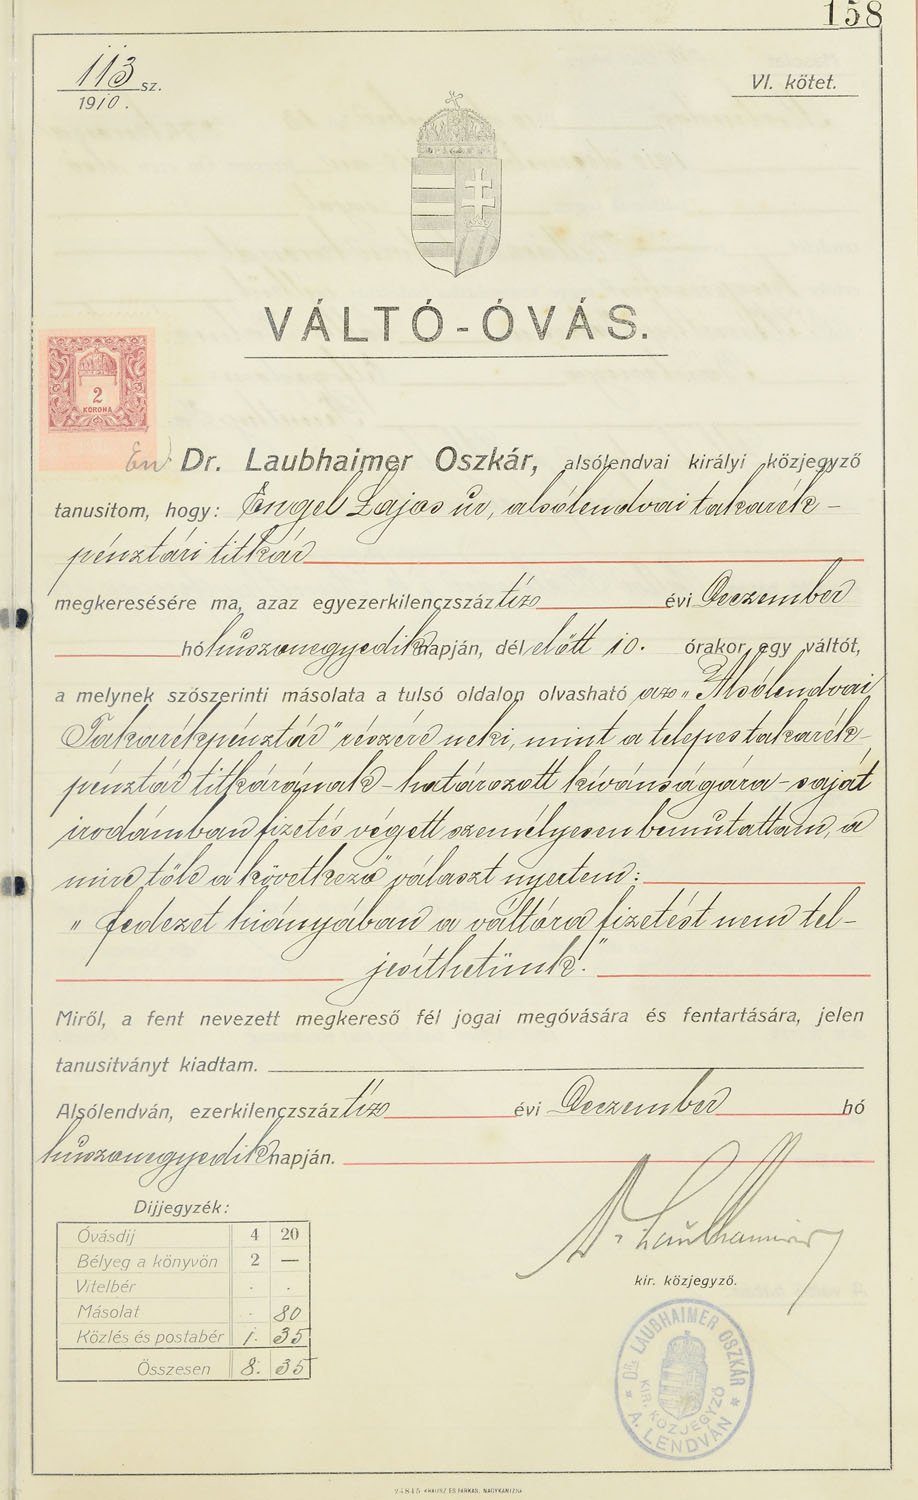 158
113 sz.
1910.
VI. kötet.
VÁLTÓ-ÓVÁS.
2
KORONA
Én Dr. Laubhaimer Oszkár, alsólendvai királyi közjegyző
tanusitom, hogy: Engel Lajos úr, alsólendvai takarék-
pénztári titkár
megkeresésére ma, azaz egyezerkilenczszáz tíz évi Deczember
hó huszonegyedik napján, dél előtt 10. órakor egy váltót,
a melynek szószerinti másolata a tulsó oldalon olvasható az „Alsólendvai
Takarékpénztár" részére neki, mint a telepes takarék-
pénztár titkárának – határozott kívánságára – saját
irodámban fizetés végett személyesen bemutattam, a
mire tőle a következő választ nyertem:
„fedezet hiányában a váltóra fizetést nem tel-
jesíthetünk."
Miről, a fent nevezett megkereső fél jogai megóvására és fentartására, jelen
tanusitványt kiadtam.
Alsólendván, ezerkilenczszáz tíz évi Deczember hó
huszonegyedik napján.
Díjjegyzék:
Óvásdij 4 20
Bélyeg a könyvön 2 —
Vitelbér . .
Másolat . 80
Közlés és postabér 1. 35
Összesen 8. 35
Dr. Laubhaimer
kir. közjegyző.
* DR. LAUBHAIMER OSZKÁR *
KIR. KÖZJEGYZŐ
A. LENDVÁN
24845 KRAUSZ ÉS FARKAS, NAGYKANIZSA